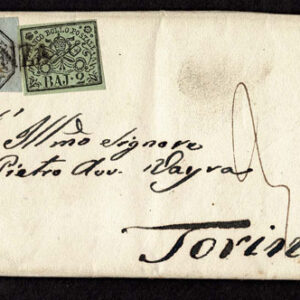 NZA
FRANCO BOLLO POSTALE
BAJ. 2
Ill:mo Signore
Pietro Avv. Vayra
Torin